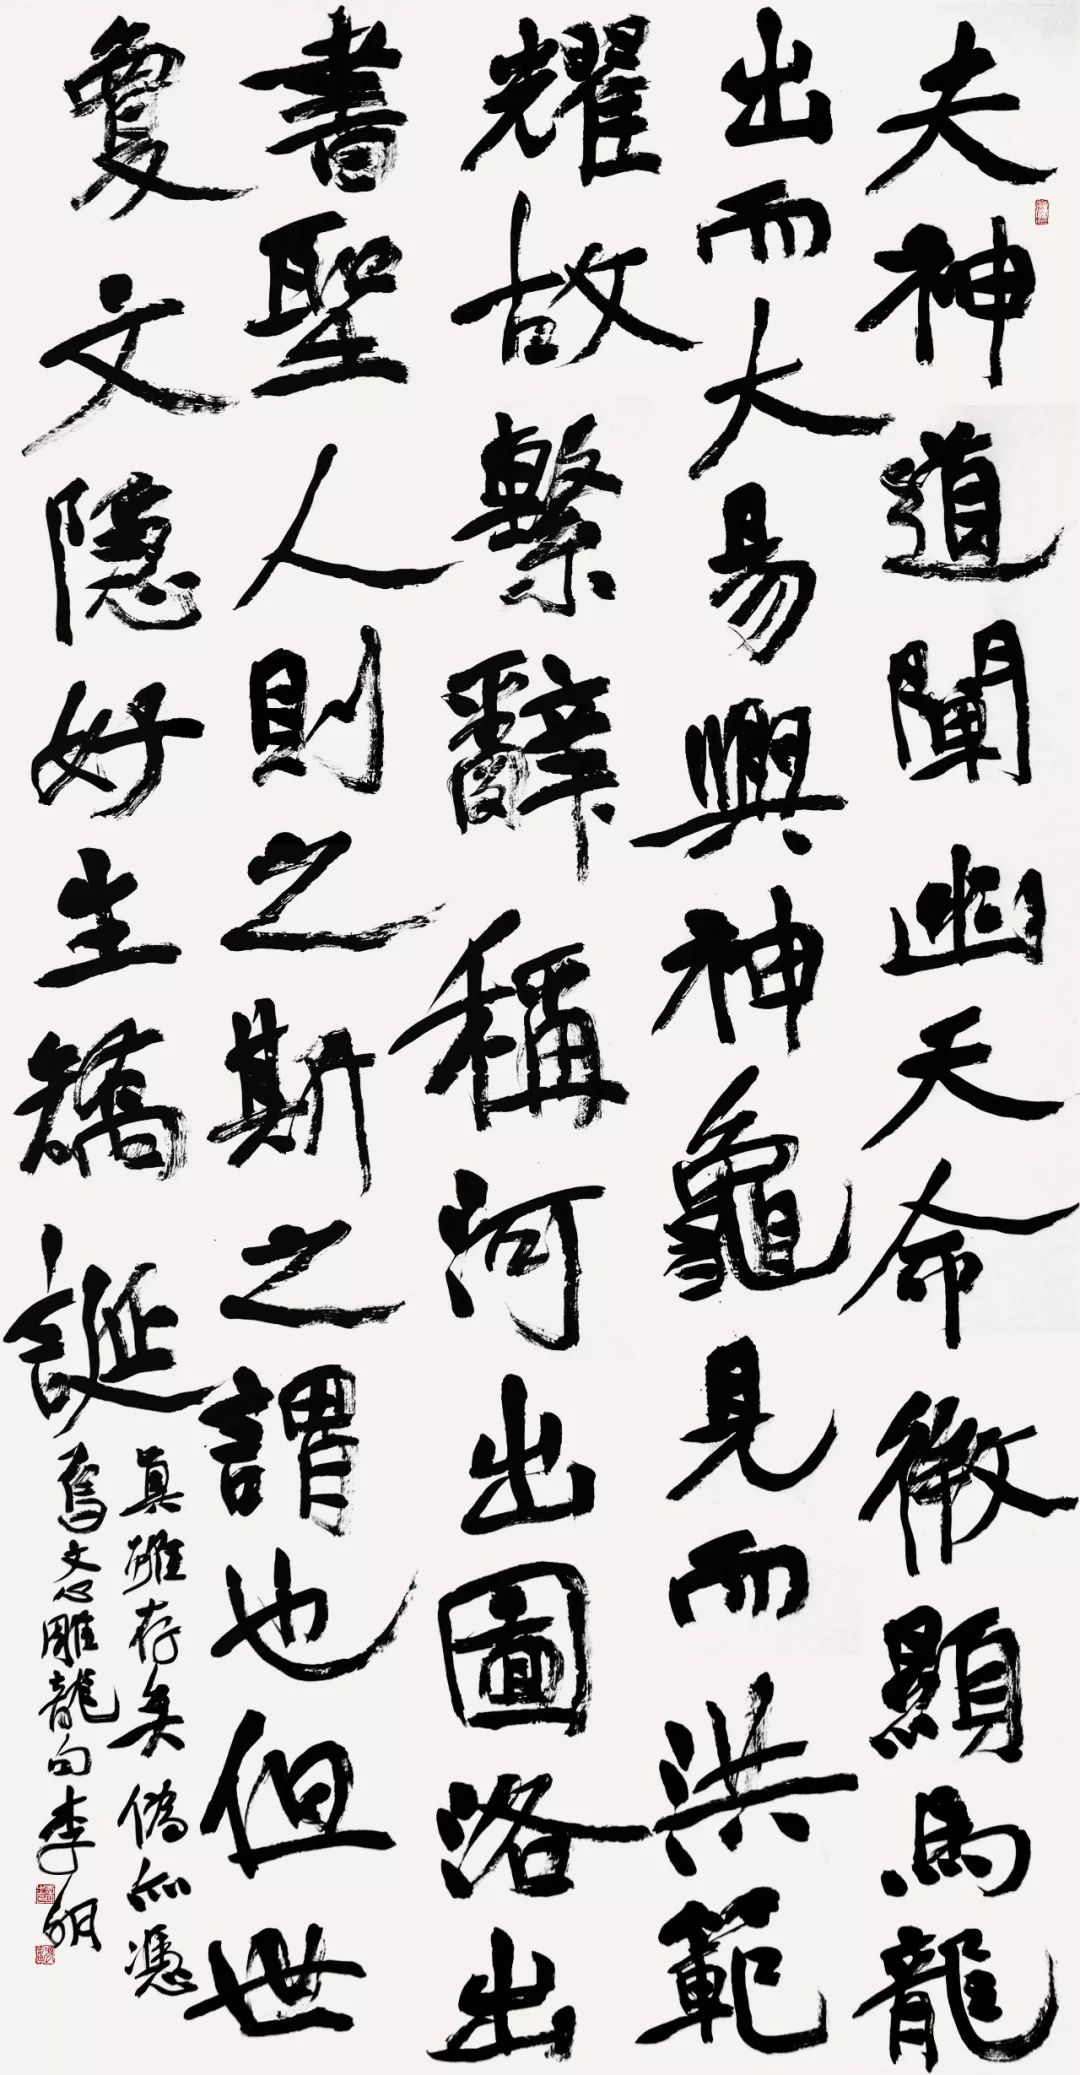 夫神道闡幽天命微顯馬龍
出而大易興神龜見而洪範
耀故繫辭稱河出圖洛出
書聖人則之斯之謂也但世
夐文隱好生矯誕
真雖存矣偽亦憑
焉文心雕龍句李明